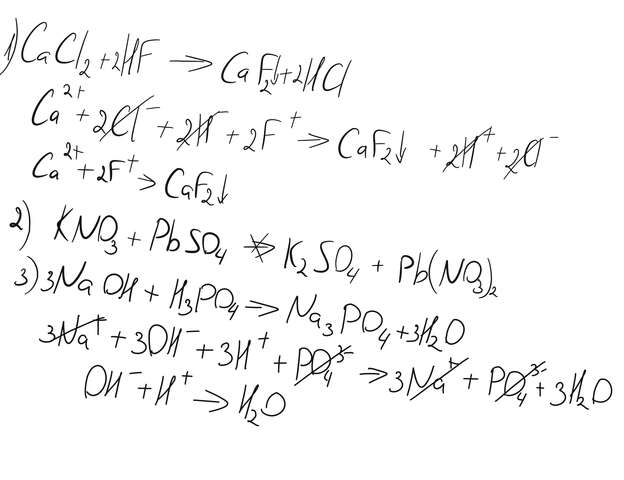 1) CaCl₂ + 2HF → CaF₂↓ + 2HCl
Ca²⁺ + 2Cl⁻ + 2H⁻ + 2F⁺ → CaF₂↓ + 2H⁺ + 2Cl⁻
Ca²⁺ + 2F⁺ → CaF₂↓
2) KNO₃ + PbSO₄ ↛ K₂SO₄ + Pb(NO₃)₂
3) 3NaOH + H₃PO₄ → Na₃PO₄ + 3H₂O
3Na⁺ + 3OH⁻ + 3H⁺ + PO₄³⁻ → 3Na⁺ + PO₄³⁻ + 3H₂O
OH⁻ + H⁺ → H₂O